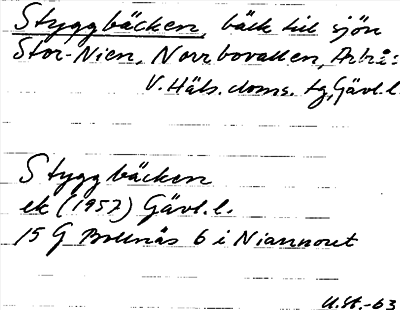 Styggbäcken, bäck till sjön
Stor-Nien, Norrbovallen, Arbrå;
V. Häls. doms. tg, Gävl.l.
Styggbäcken
ek (1957) Gävl.l.
15 G Bollnäs 6 i Niannoret
U.St.-63